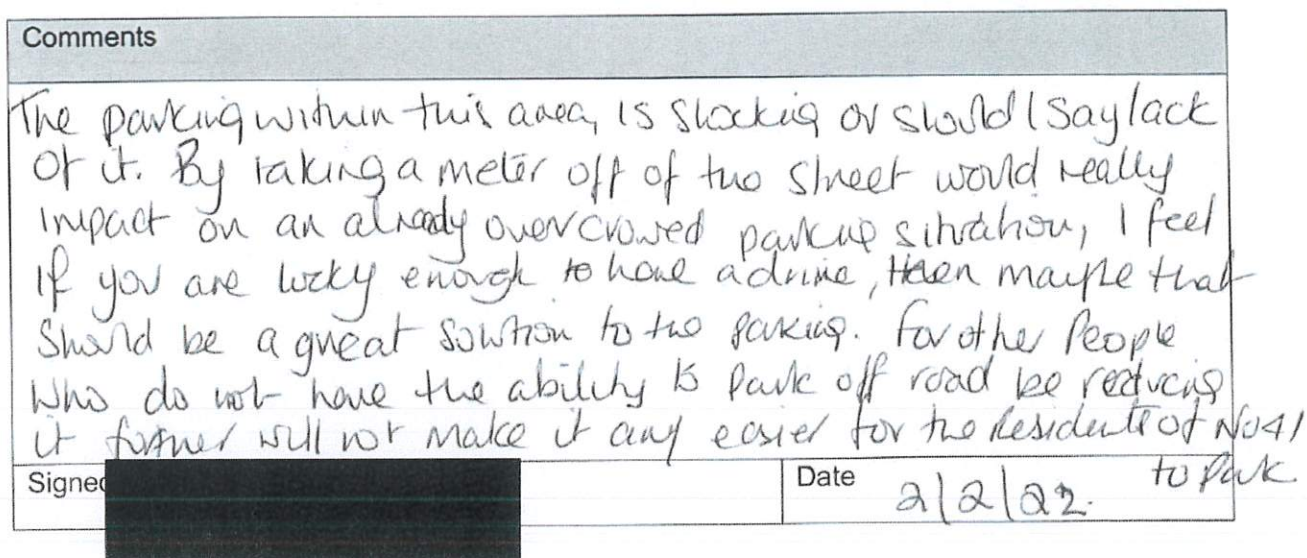 Comments
The parking within this area, is shocking or should I say lack
of it. By taking a meter off of the street would really
impact on an already overcrowed parking situation, I feel
If you are lucky enough to have a drive, then maybe that
should be a great solution to the parking. For other People
who do not have the ability to park off road be reducing
it further will not make it any easier for the Residents of No41
to park
Signed
Date 2/2/22.